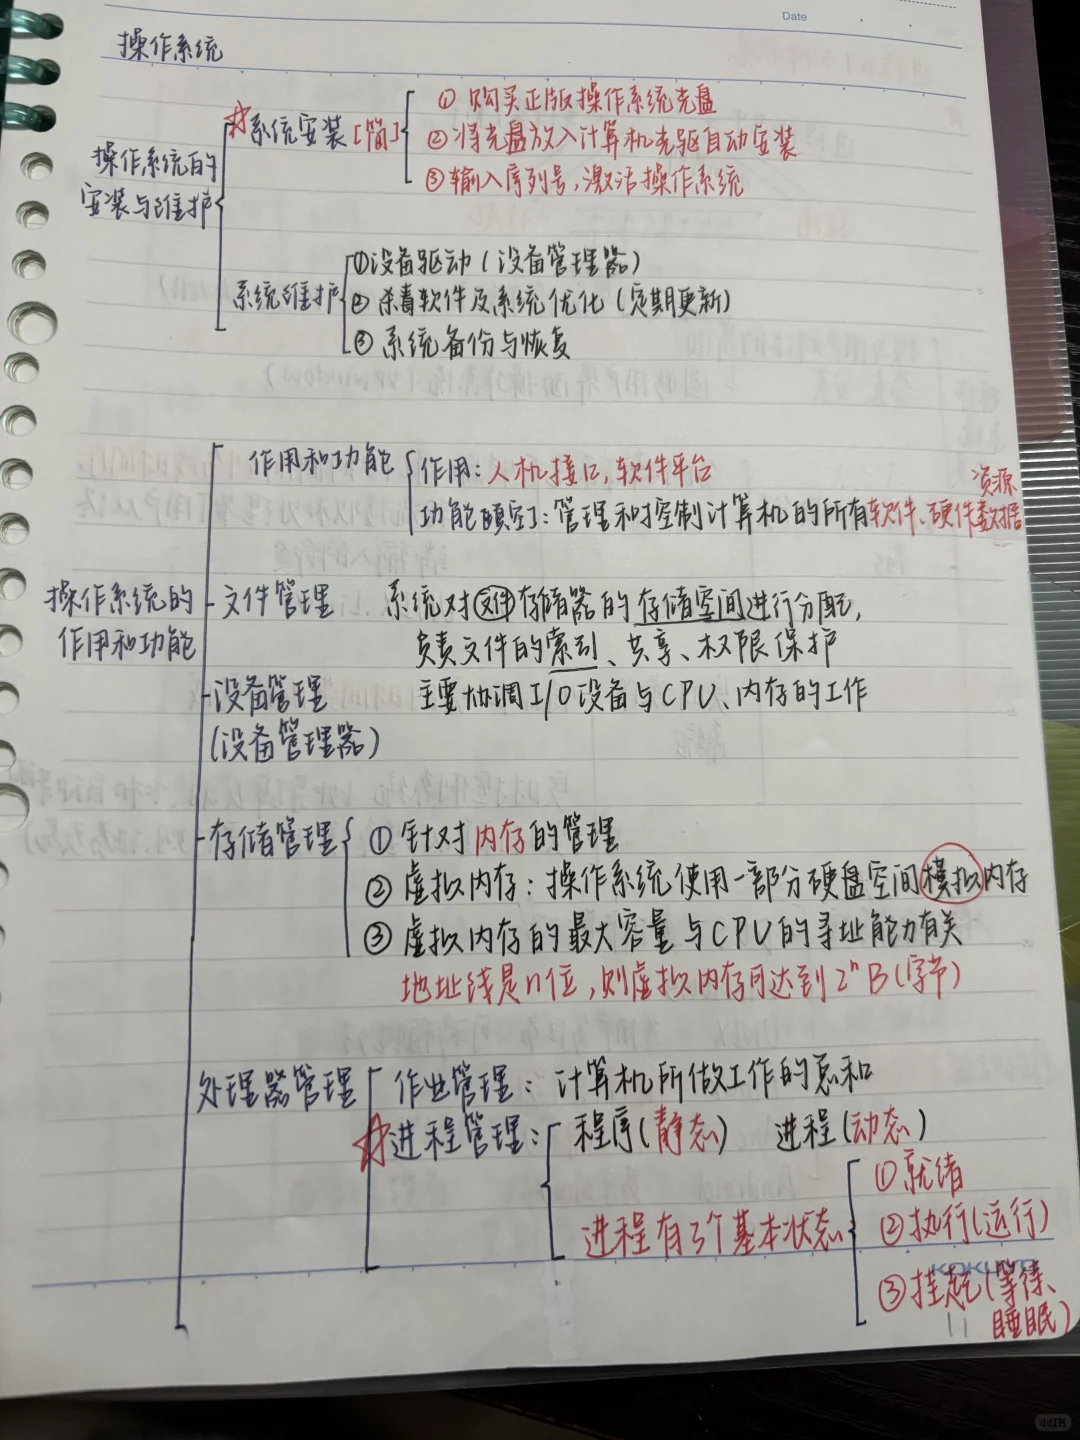 Date
操作系统
操作系统的
安装与维护
☆系统安装[简]
① 购买正版操作系统光盘
②将光盘放入计算机光驱自动安装
③输入序列号,激活操作系统
系统维护
①设备驱动(设备管理器)
② 杀毒软件及系统优化(定期更新)
③ 系统备份与恢复
操作系统的
作用和功能
作用和功能
作用:人机接口,软件平台
功能[填空]:管理和控制计算机的所有软件、硬件数据
资源
文件管理 系统对文件存储器的存储空间进行分配,
负责文件的索引、共享、权限保护
设备管理 主要协调I/O设备与CPU、内存的工作
(设备管理器)
存储管理
① 针对内存的管理
② 虚拟内存:操作系统使用一部分硬盘空间模拟内存
③ 虚拟内存的最大容量与CPU的寻址能力有关
地址线是n位,则虚拟内存可达到2ⁿB(字节)
处理器管理
作业管理:计算机所做工作的总和
☆进程管理:
程序(静态) 进程(动态)
进程有3个基本状态
①就绪
②执行(运行)
③挂起(等待、
睡眠)
KOKUYO
小红书